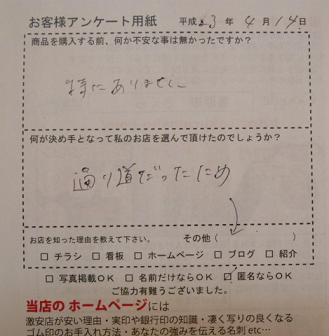 お客様アンケート用紙 平成23年4月14日
商品を購入する前、何か不安な事は無かったですか？
特にありません
何が決め手となって私のお店を選んで頂けたのでしょうか？
通り道だったため
お店を知った理由を教えて下さい。 その他（ ）
□ チラシ □ 看板 □ ホームページ □ ブログ □ 紹介
□ 写真掲載OK □ 名前だけならOK ☑ 匿名ならOK
ご協力有難うございました。
当店の ホームページには
激安店が安い理由・実印や銀行印の知識・凄く写りの良くなる
ゴム印のお手入れ方法・あなたの強みを伝える名刺 etc…